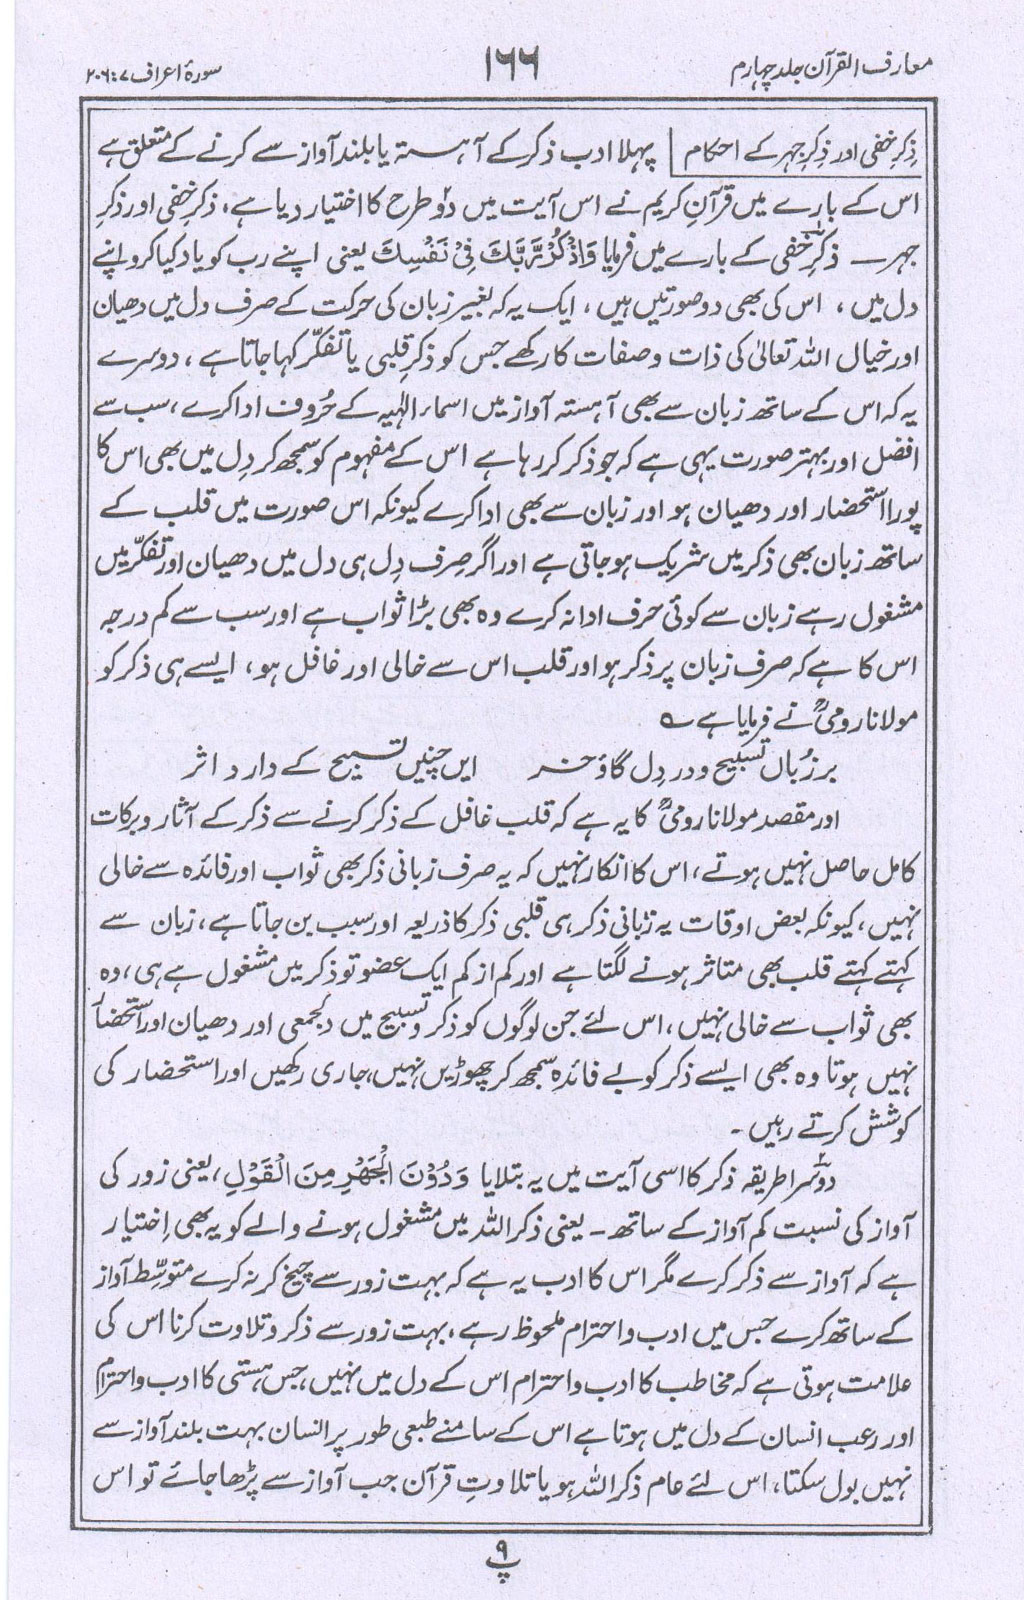 معارف القرآن جلد چہارم
۱۶۶
سورۂ اعراف ۷: ۲۰۶
ذکرِ خفی اور ذکرِ جہر کے احکام
پہلا ادب ذکر کے آہستہ یا بلند آواز سے کرنے کے متعلق ہے
اس کے بارے میں قرآن کریم نے اس آیت میں دو طرح کا اختیار دیا ہے، ذکرِ خفی اور ذکرِ
جہر ــ ذکرِ خفی کے بارے میں فرمایا وَاذْكُرْ رَّبَّكَ فِیْ نَفْسِكَ یعنی اپنے رب کو یاد کیا کرو اپنے
دل میں ، اس کی بھی دو صورتیں ہیں ، ایک یہ کہ بغیر زبان کی حرکت کے صرف دل میں دھیان
اور خیال اللہ تعالیٰ کی ذات و صفات کا رکھے جس کو ذکرِ قلبی یا تفکّر کہا جاتا ہے ، دوسرے
یہ کہ اس کے ساتھ زبان سے بھی آہستہ آواز میں اسماء الٰہیہ کے حُروف ادا کرے ، سب سے
افضل اور بہتر صورت یہی ہے کہ جو ذکر کر رہا ہے اس کے مفہوم کو سمجھ کر دِل میں بھی اس کا
پورا استحضار اور دھیان ہو اور زبان سے بھی ادا کرے کیونکہ اس صورت میں قلب کے
ساتھ زبان بھی ذکر میں شریک ہوجاتی ہے اور اگر صِرف دِل ہی دل میں دھیان اور تفکّر میں
مشغول رہے زبان سے کوئی حرف ادا نہ کرے وہ بھی بڑا ثواب ہے اور سب سے کم درجہ
اس کا ہے کہ صرف زبان پر ذکر ہو اور قلب اس سے خالی اور غافل ہو، ایسے ہی ذکر کو
مولانا رومیؒ نے فرمایا ہے ؎
بر زباں تسبیح و در دِل گاؤخر   ایں چنیں تسبیح کے دارد اثر
اور مقصد مولانا رومیؒ کا یہ ہے کہ قلب غافل کے ذکر کرنے سے ذکر کے آثار و برکات
کامل حاصل نہیں ہوتے، اس کا انکار نہیں کہ یہ صرف زبانی ذکر بھی ثواب اور فائدہ سے خالی
نہیں، کیونکہ بعض اوقات یہ زبانی ذکر ہی قلبی ذکر کا ذریعہ اور سبب بن جاتا ہے، زبان سے
کہتے کہتے قلب بھی متاثر ہونے لگتا ہے اور کم از کم ایک عضو تو ذکر میں مشغول ہے ہی، وہ
بھی ثواب سے خالی نہیں، اس لئے جن لوگوں کو ذکر و تسبیح میں دلجمعی اور دھیان اور استحضار
نہیں ہوتا وہ بھی ایسے ذکر کو بے فائدہ سمجھ کر چھوڑیں نہیں، جاری رکھیں اور استحضار کی
کوشش کرتے رہیں ۔
دوسرا طریقہ ذکر کا اسی آیت میں یہ بتلایا وَدُوْنَ الْجَهْرِ مِنَ الْقَوْلِ ، یعنی زور کی
آواز کی نسبت کم آواز کے ساتھ ۔ یعنی ذکر اللہ میں مشغول ہونے والے کو یہ بھی اِختیار
ہے کہ آواز سے ذکر کرے مگر اس کا ادب یہ ہے کہ بہت زور سے چیخ کر نہ کرے متوسّط آواز
کے ساتھ کرے جس میں ادب و احترام ملحوظ رہے ، بہت زور سے ذکر و تلاوت کرنا اس کی
علامت ہوتی ہے کہ مخاطب کا ادب و احترام اس کے دل میں نہیں، جس ہستی کا ادب و احترام
اور رعب انسان کے دل میں ہوتا ہے اس کے سامنے طبعی طور پر انسان بہت بلند آواز سے
نہیں بول سکتا، اس لئے عام ذکر اللہ ہو یا تلاوتِ قرآن جب آواز سے پڑھا جائے تو اس
۹
پ